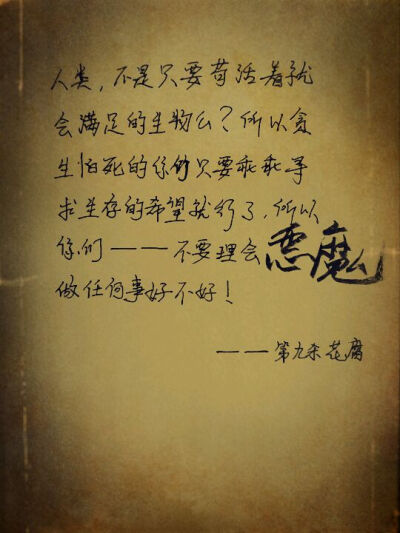 人类，不是只要苟活着就
会满足的生物么？所以贪
生怕死的你们只要乖乖寻
求生存的希望就行了，所以
你们——不要理会恶魔
做任何事好不好！
——第九杀花腐